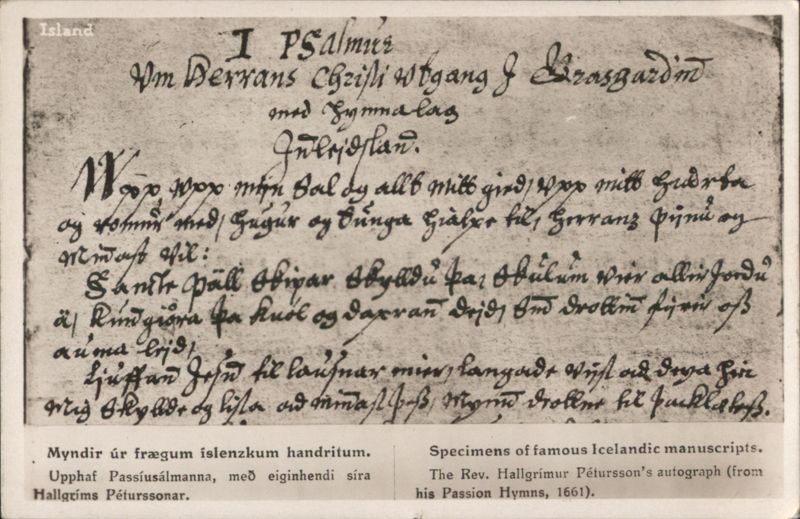 Island
I PSalmur
Vm Herrans Christi vtgang J Grasgardiñ
med hymnalag
Jñlejdslañ.
Wpp vpp mijn Sal og allt mitt gied, vpp mitt hiarta
og romur med, hugur og tunga hialpe til, herrans pijnu og
Miñast vil:
Sancte Páll Skipar Skylldu þa, Skulum vier aller Jordu
á, Kuñgiöra þa kuöl og daprañ dejd, Sem drottiñ fyrer oß
auma lejd,
Ljuffañ Jesuñ til lausnar mier, langade vijst ad deya hier
Mig Skyllde og lista ad miñast þess, Mijnum drottne til þacklætess.
Myndir úr frægum íslenzkum handritum.
Upphaf Passíusálmanna, með eiginhendi síra
Hallgríms Péturssonar.
Specimens of famous Icelandic manuscripts.
The Rev. Hallgrímur Pétursson's autograph (from
his Passion Hymns, 1661).